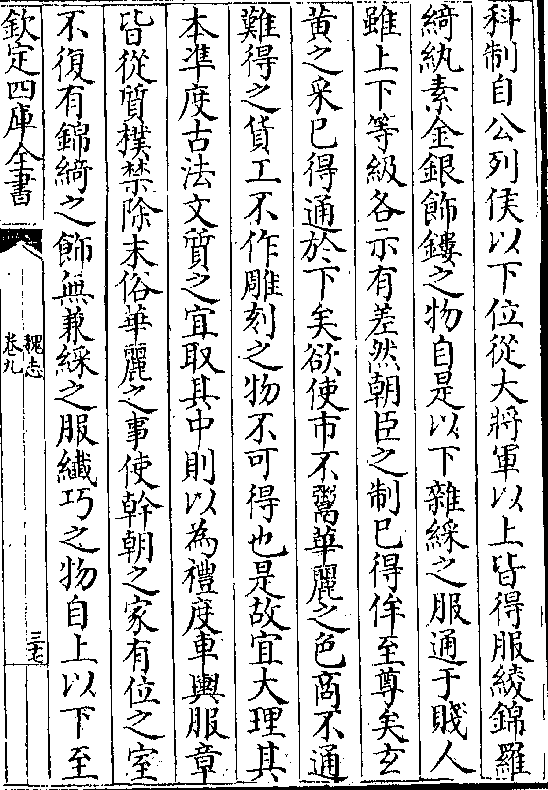 科制自公列侯以下位從大將軍以上皆得服綾錦羅
綺紈素金銀飾鏤之物自是以下雜綵之服通于賤人
雖上下等級各示有差然朝臣之制已得侔至尊矣玄
黄之采已得通於下矣欲使市不鬻華麗之色商不通
難得之貨工不作雕刻之物不可得也是故宜大理其
本凖度古法文質之宜取其中則以為禮度車輿服章
皆從質樸禁除末俗華麗之事使幹朝之家有位之室
不復有錦綺之飾無兼綵之服纖巧之物自上以下至
欽定四庫全書
魏志
卷九
三七